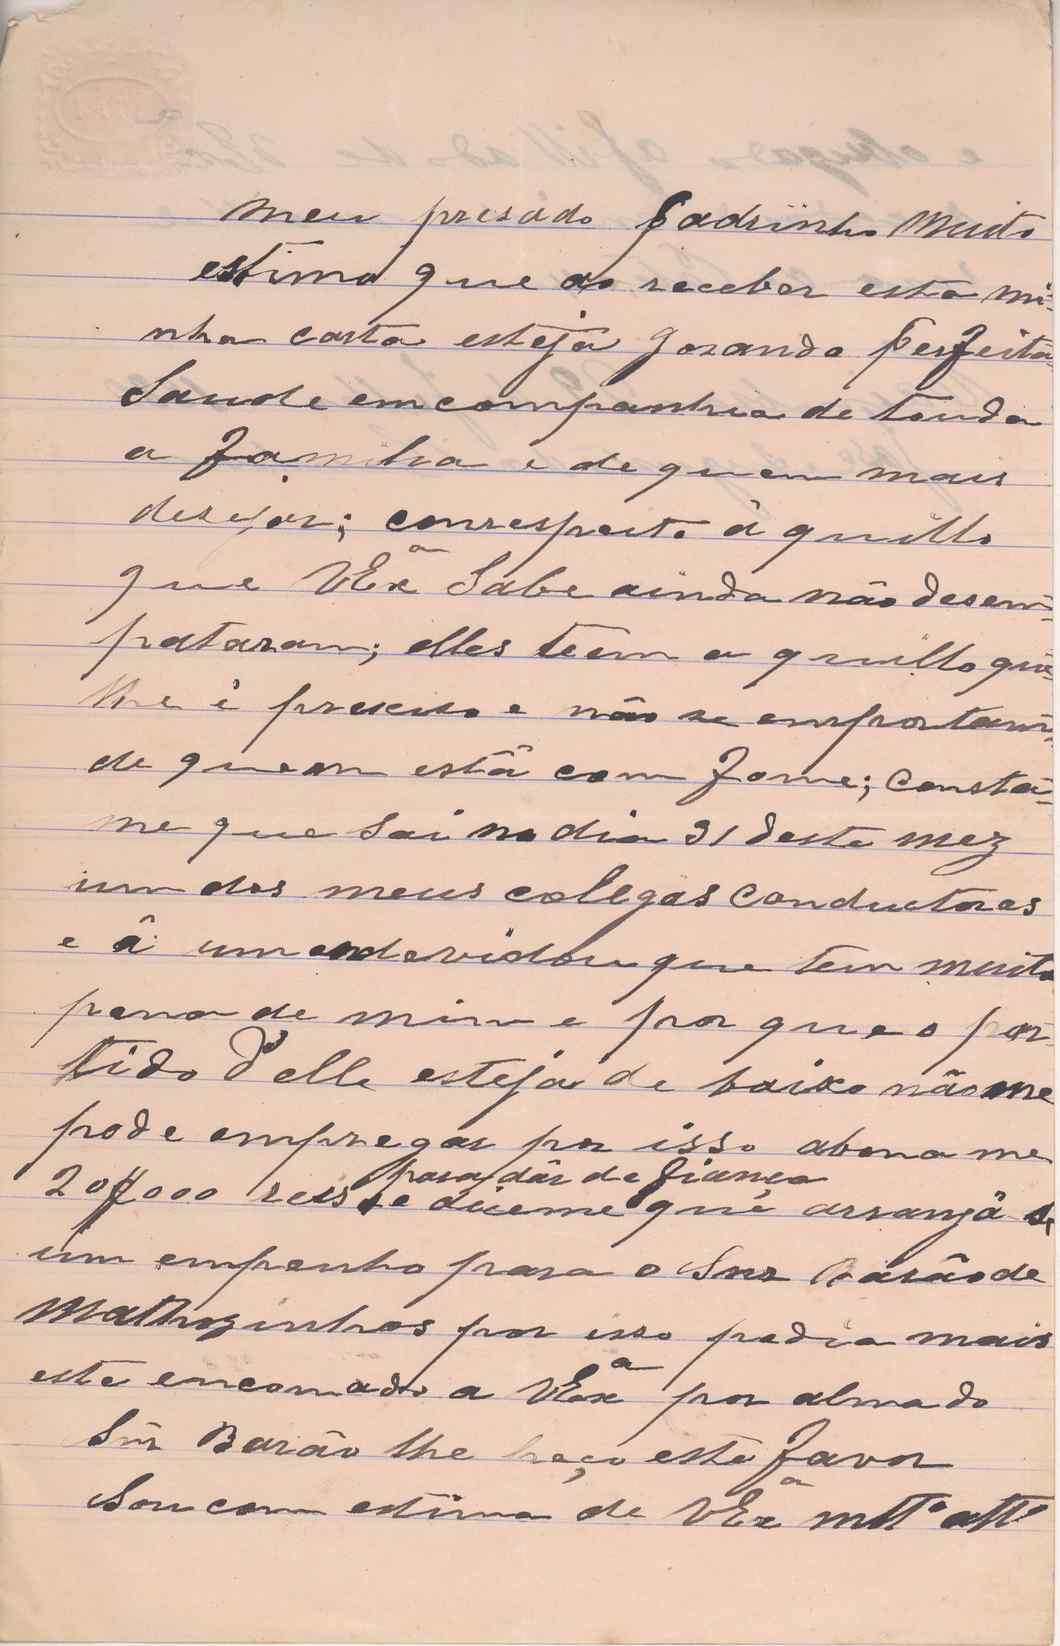 Meu presado Padrinho Muito
estimo que ao receber esta mi-
nha carta esteja gosando perfeita
Saude em companhia de touda
a familha e de quem mais
desejar; conrespeito á quillo
que VExª Sabe ainda não desem-
pataram; elles teem a quillo que
lhe é preciso e não se emportam
de quem está com fome; Consta-
me que Sai no dia 31 deste mez
um dos meus colegas Conductores
e â um endevidou que tem muita
pena de mim e por que o par-
tido d'elle esteja de baixo não me
pode empregar por isso abona me
para dár de fiança
20$000 reis e diceme que arranjá se
um empenho para o Snr Barão de
Mathozinhos por isso pedia mais
este encomado a VExª por alma do
Snr Barão lhe peço este favor
Sou com estima de VExª mttº attº